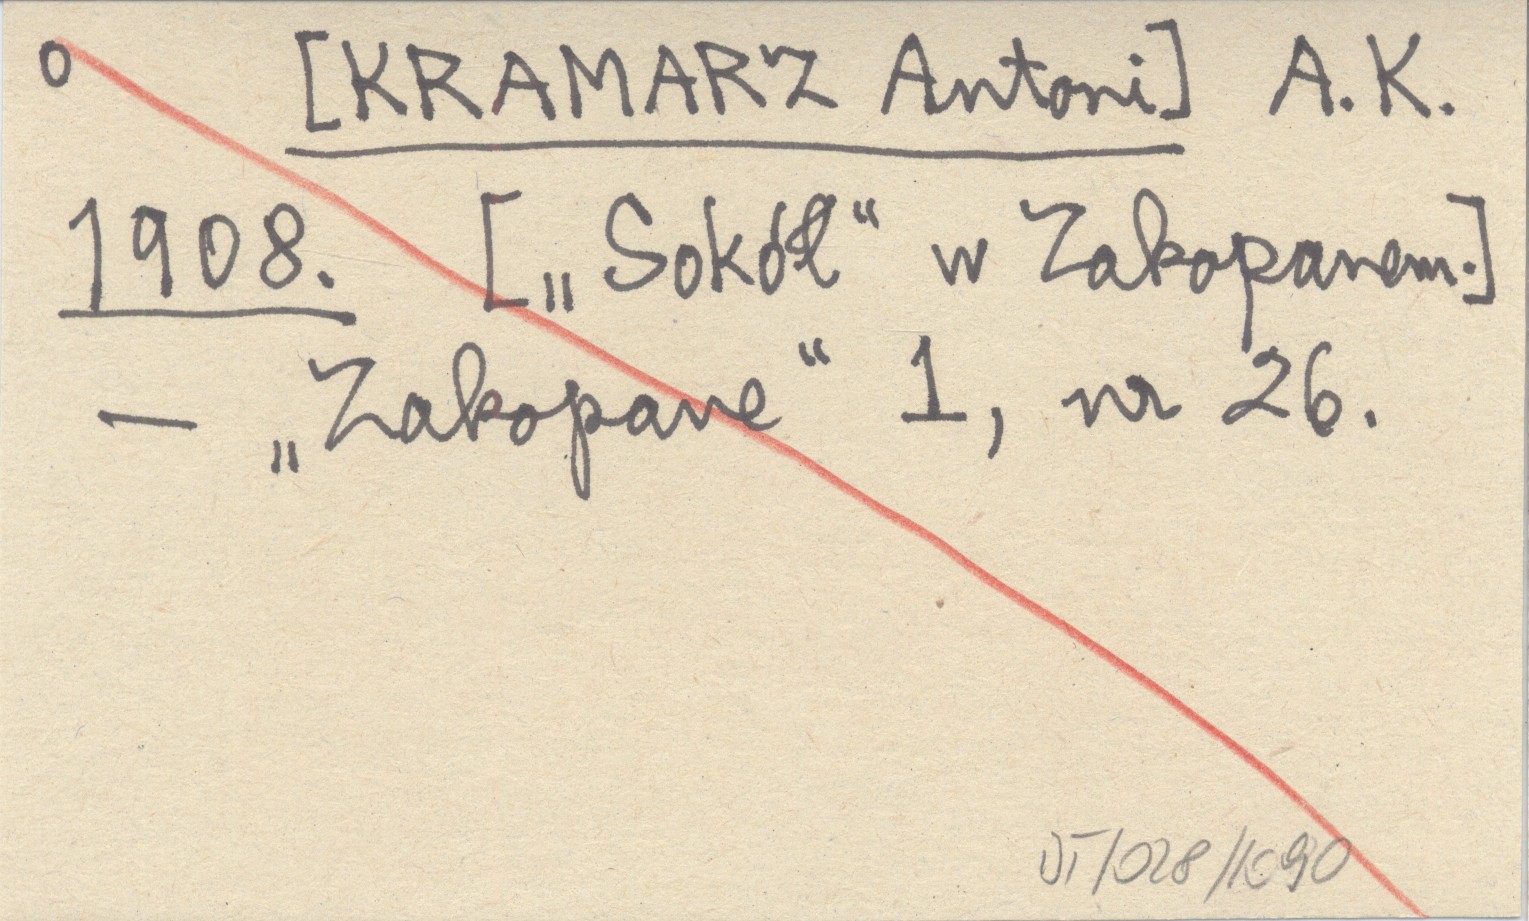 o [KRAMARZ Antoni] A.K.
1908. [„Sokół“ w Zakopanem.]
— „Zakopane“ 1, nr 26.
/028/1090